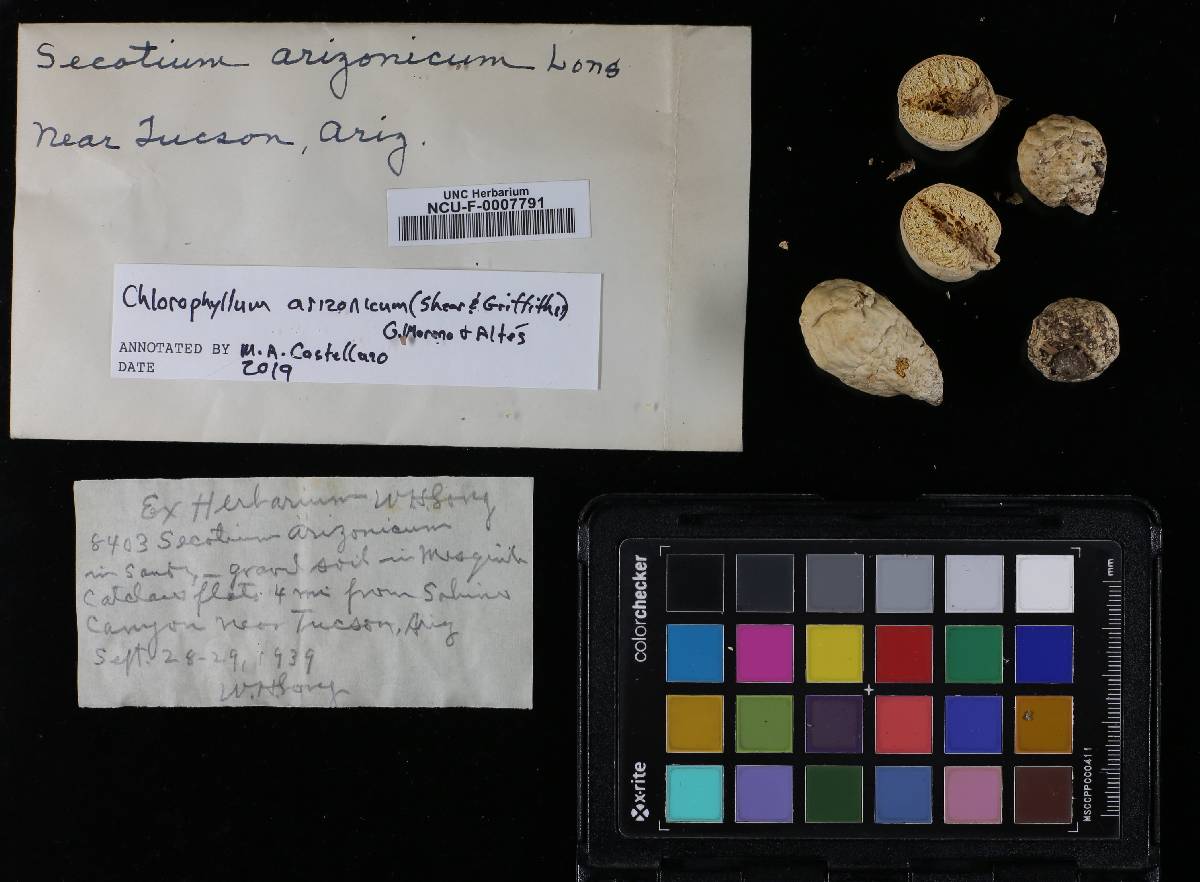 Secotium arizonicum Long
near Tucson, Ariz.
UNC Herbarium
NCU-F-0007791
Chlorophyllum arizonicum (Shear & Griffiths)
G. Moreno & Altés
ANNOTATED BY M. A. Castellano
DATE 2019
Ex Herbarium W.H. Long
8403 Secotium arizonicum
in Sandy - gravel soil in Mesquite
Catclaw flats 4 mi from Sabino
Canyon near Tucson, Ariz
Sept. 28-29, 1939
W.H. Long
colorchecker
x-rite
mm
MSCCPPCC0411